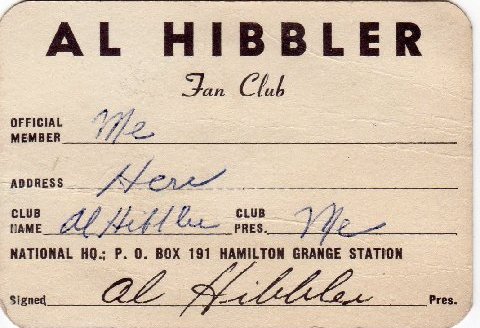 AL HIBBLER
Fan Club
OFFICIAL
MEMBER Me
ADDRESS Here
CLUB NAME Al Hibbler CLUB PRES. Me
NATIONAL HQ.; P. O. BOX 191 HAMILTON GRANGE STATION
Signed Al Hibbler Pres.